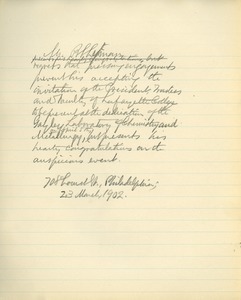 Mr.
regrets that pressing engagements
prevent his accepting the
invitation of the President, Trustees
and Faculty of Lafayette College
to be present at the dedication of the
Gayley Laboratory of Chemistry and
Metallurgy, but presents his
hearty congratulations on the
auspicious event.
Locust St., Philadelphia,
23 March, 1902.